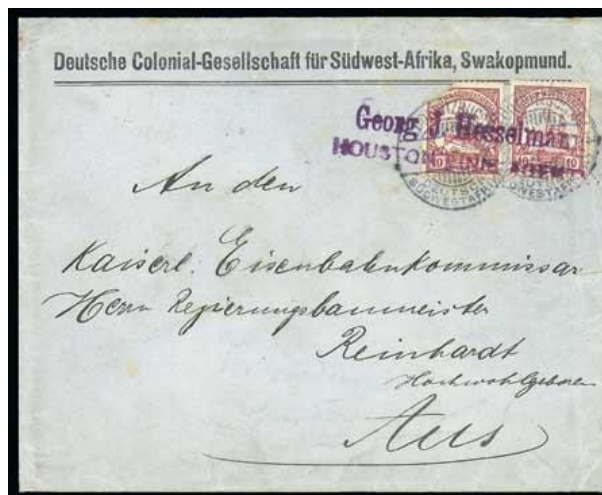 Deutsche Colonial-Gesellschaft für Südwest-Afrika, Swakopmund.
Georg J. Hesselman
HOUSTON
10 10
DEUTSCH
SÜDWESTAFRIKA SÜDWESTAFRIKA
An den
Kaiserl. Eisenbahnkommissar
Herrn Regierungsbaumeister
Reinhardt
Hochwohlgeboren
Aus